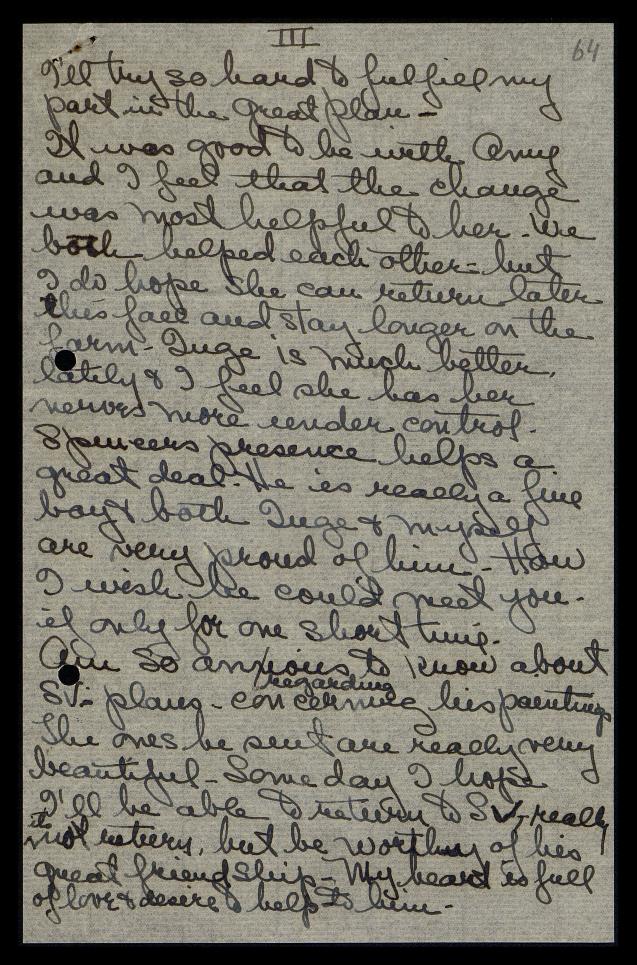 III
64
I'll try so hard to fulfill my
part in the great plan -
It was good to be with Amy
and I feel that the change
was most helpful to her. We
both helped each other - but
I do hope she can return later
this fall and stay longer on the
farm - Inge is much better,
lately & I feel she has her
nerves more under control.
Spencers presence helps a
great deal. He is really a fine
boy & both Inge & myself
are very proud of him. - How
I wish he could meet you -
if only for one short time.
Am so anxious to know about
regarding
SV- plans - concerning his paintings
The ones he sent are really very
beautiful - Some day I hope
I'll be able to return to SV, really
not return, but be worthy of his
great friendship - My heart is full
of love & desire to help to him -